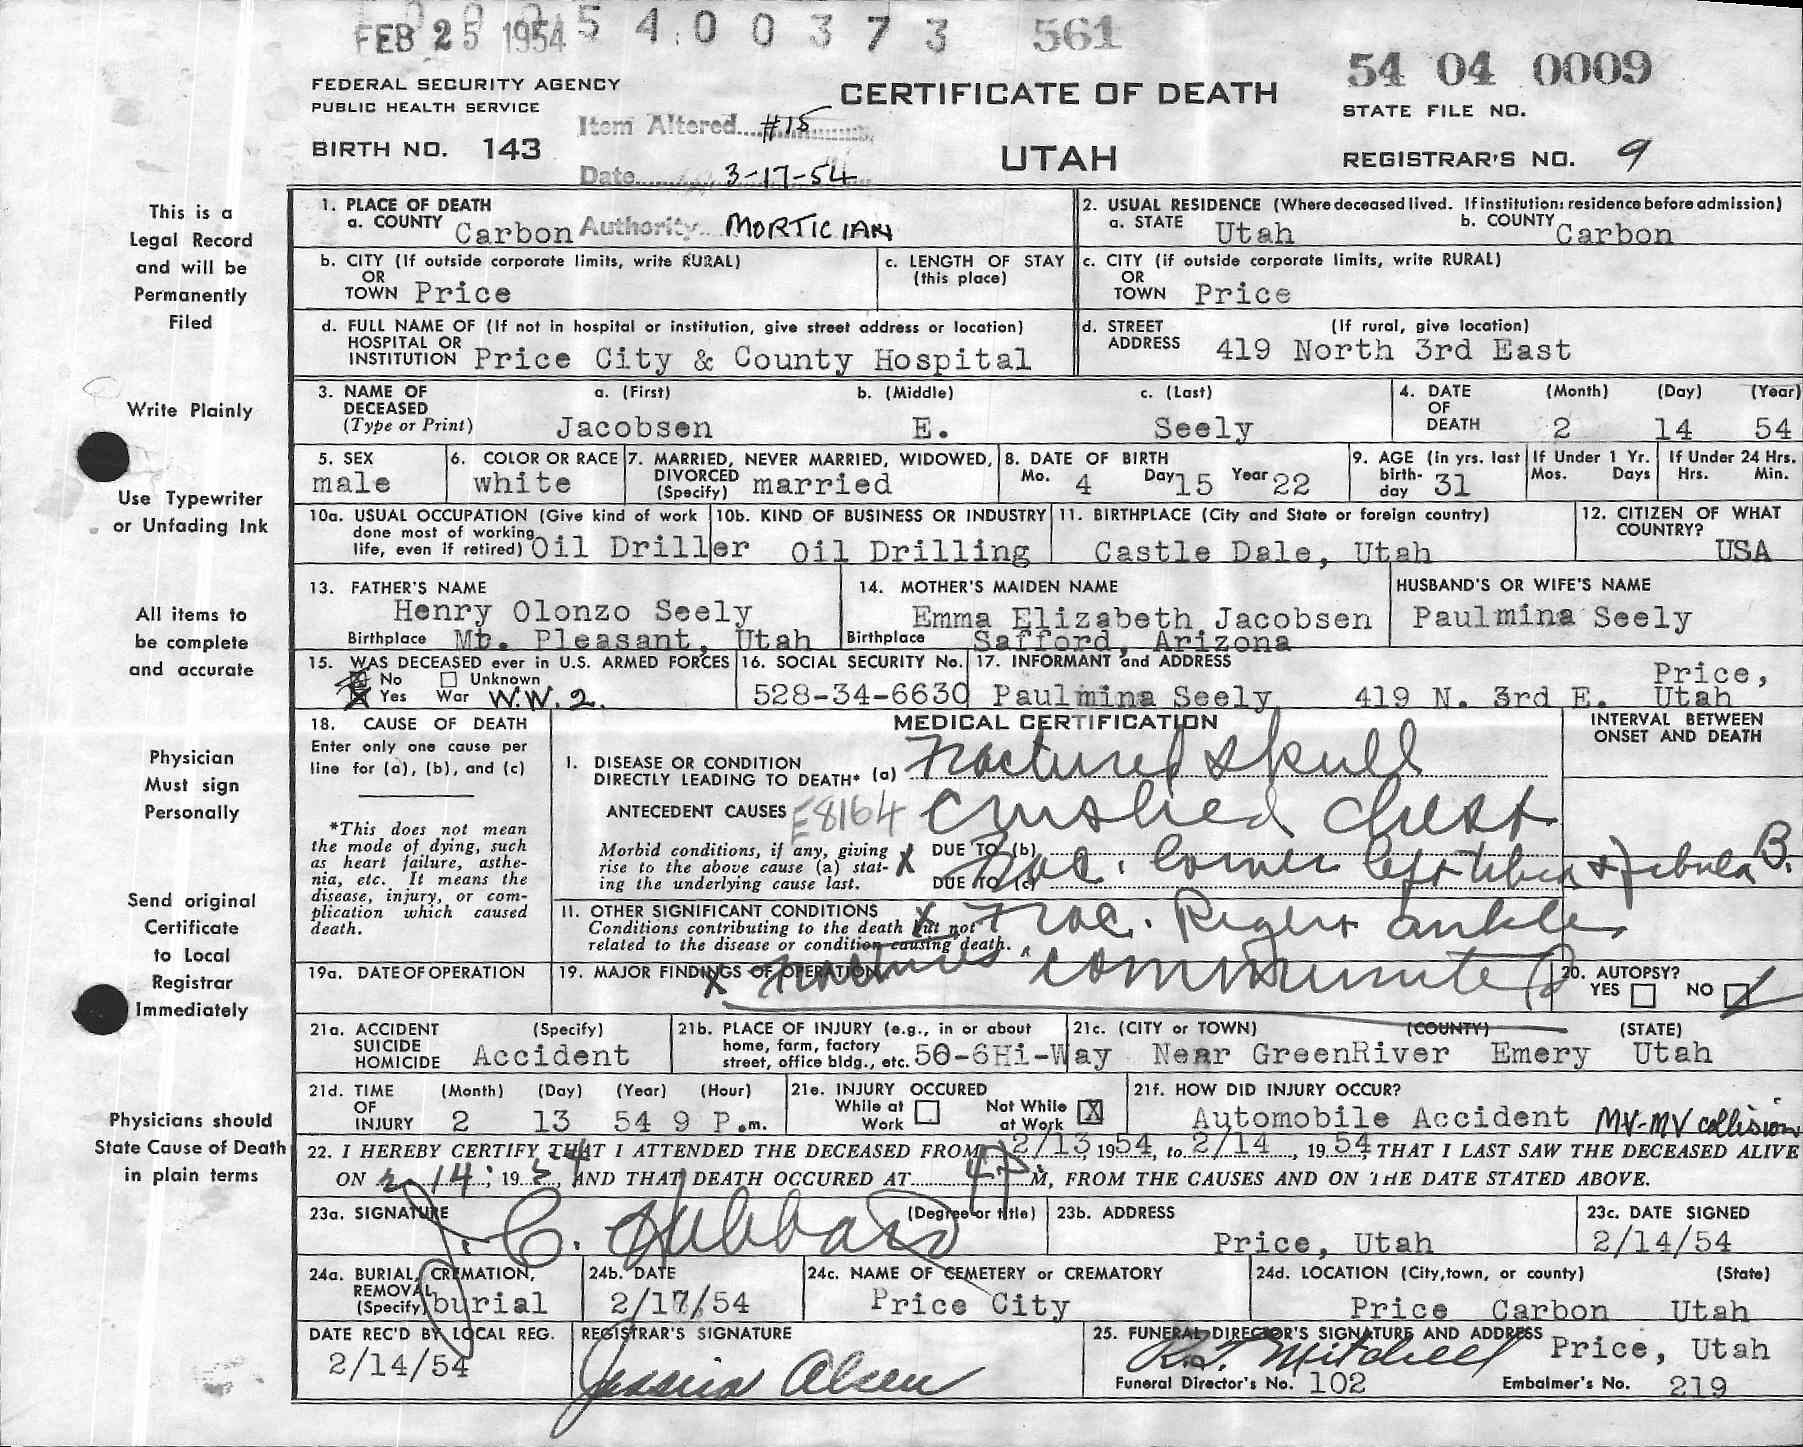 FEB 25 1954 5 4 0 0 3 7 3 561
54 04 0009
FEDERAL SECURITY AGENCY
PUBLIC HEALTH SERVICE
CERTIFICATE OF DEATH
STATE FILE NO.
Item Altered #15
BIRTH NO. 143
UTAH
REGISTRAR'S NO. 9
Date 3-17-54
This is a
Legal Record
and will be
Permanently
Filed
Write Plainly
Use Typewriter
or Unfading Ink
All items to
be complete
and accurate
Physician
Must sign
Personally
Send original
Certificate
to Local
Registrar
Immediately
Physicians should
State Cause of Death
in plain terms
1. PLACE OF DEATH
a. COUNTY Carbon Authority MORTICIAN
2. USUAL RESIDENCE (Where deceased lived. If institution: residence before admission)
a. STATE Utah b. COUNTY Carbon
b. CITY (If outside corporate limits, write RURAL)
OR
TOWN Price
c. LENGTH OF STAY
(this place)
c. CITY (if outside corporate limits, write RURAL)
OR
TOWN Price
d. FULL NAME OF (If not in hospital or institution, give street address or location)
HOSPITAL OR
INSTITUTION Price City & County Hospital
d. STREET (If rural, give location)
ADDRESS 419 North 3rd East
3. NAME OF DECEASED (Type or Print)
a. (First) b. (Middle) c. (Last)
Jacobsen E. Seely
4. DATE OF DEATH (Month) (Day) (Year)
2 14 54
5. SEX
male
6. COLOR OR RACE
white
7. MARRIED, NEVER MARRIED, WIDOWED,
DIVORCED
(Specify) married
8. DATE OF BIRTH
Mo. 4 Day 15 Year 22
9. AGE (in yrs. last
birth-
day 31
If Under 1 Yr.
Mos. Days
If Under 24 Hrs.
Hrs. Min.
10a. USUAL OCCUPATION (Give kind of work
done most of working
life, even if retired) Oil Driller
10b. KIND OF BUSINESS OR INDUSTRY
Oil Drilling
11. BIRTHPLACE (City and State or foreign country)
Castle Dale, Utah
12. CITIZEN OF WHAT
COUNTRY?
USA
13. FATHER'S NAME
Henry Olonzo Seely
Birthplace Mt. Pleasant, Utah
14. MOTHER'S MAIDEN NAME
Emma Elizabeth Jacobsen
Birthplace Safford, Arizona
HUSBAND'S OR WIFE'S NAME
Paulmina Seely
15. WAS DECEASED ever in U.S. ARMED FORCES
No Unknown
Yes War W.W.2.
16. SOCIAL SECURITY No.
528-34-6630
17. INFORMANT and ADDRESS
Paulmina Seely 419 N. 3rd E. Price, Utah
18. CAUSE OF DEATH
Enter only one cause per
line for (a), (b), and (c)
*This does not mean
the mode of dying, such
as heart failure, asthe-
nia, etc. It means the
disease, injury, or com-
plication which caused
death.
MEDICAL CERTIFICATION
INTERVAL BETWEEN
ONSET AND DEATH
I. DISEASE OR CONDITION
DIRECTLY LEADING TO DEATH* (a) Fractured skull
ANTECEDENT CAUSES E8164 crushed chest
Morbid conditions, if any, giving
rise to the above cause (a) stat-
ing the underlying cause last.
X DUE TO (b)
DUE TO (c)
Frac. lower left tibia & fibula B.
II. OTHER SIGNIFICANT CONDITIONS
Conditions contributing to the death but not
related to the disease or condition causing death.
X Frac. Right ankle
19a. DATE OF OPERATION
19. MAJOR FINDINGS OF OPERATION
X Fractures comminuted
20. AUTOPSY?
YES NO
21a. ACCIDENT (Specify)
SUICIDE
HOMICIDE Accident
21b. PLACE OF INJURY (e.g., in or about
home, farm, factory
street, office bldg., etc. 50-6Hi-Way
21c. (CITY or TOWN) (COUNTY) (STATE)
Near GreenRiver Emery Utah
21d. TIME OF INJURY
(Month) (Day) (Year) (Hour)
2 13 54 9 P.m.
21e. INJURY OCCURED
While at Work Not While at Work X
21f. HOW DID INJURY OCCUR?
Automobile Accident MV-MV collision
22. I HEREBY CERTIFY THAT I ATTENDED THE DECEASED FROM 2/13, 1954, to 2/14, 1954 THAT I LAST SAW THE DECEASED ALIVE
ON 2-14; 1954, AND THAT DEATH OCCURED AT 4 P M, FROM THE CAUSES AND ON THE DATE STATED ABOVE.
23a. SIGNATURE (Degree or title)
J. C. Hubbard
23b. ADDRESS
Price, Utah
23c. DATE SIGNED
2/14/54
24a. BURIAL, CREMATION,
REMOVAL
(Specify) burial
24b. DATE
2/17/54
24c. NAME OF CEMETERY or CREMATORY
Price City
24d. LOCATION (City,town, or county) (State)
Price Carbon Utah
DATE REC'D BY LOCAL REG.
2/14/54
REGISTRAR'S SIGNATURE
Jessie Olsen
25. FUNERAL DIRECTOR'S SIGNATURE AND ADDRESS
Mitchell Price, Utah
Funeral Director's No. 102 Embalmer's No. 219